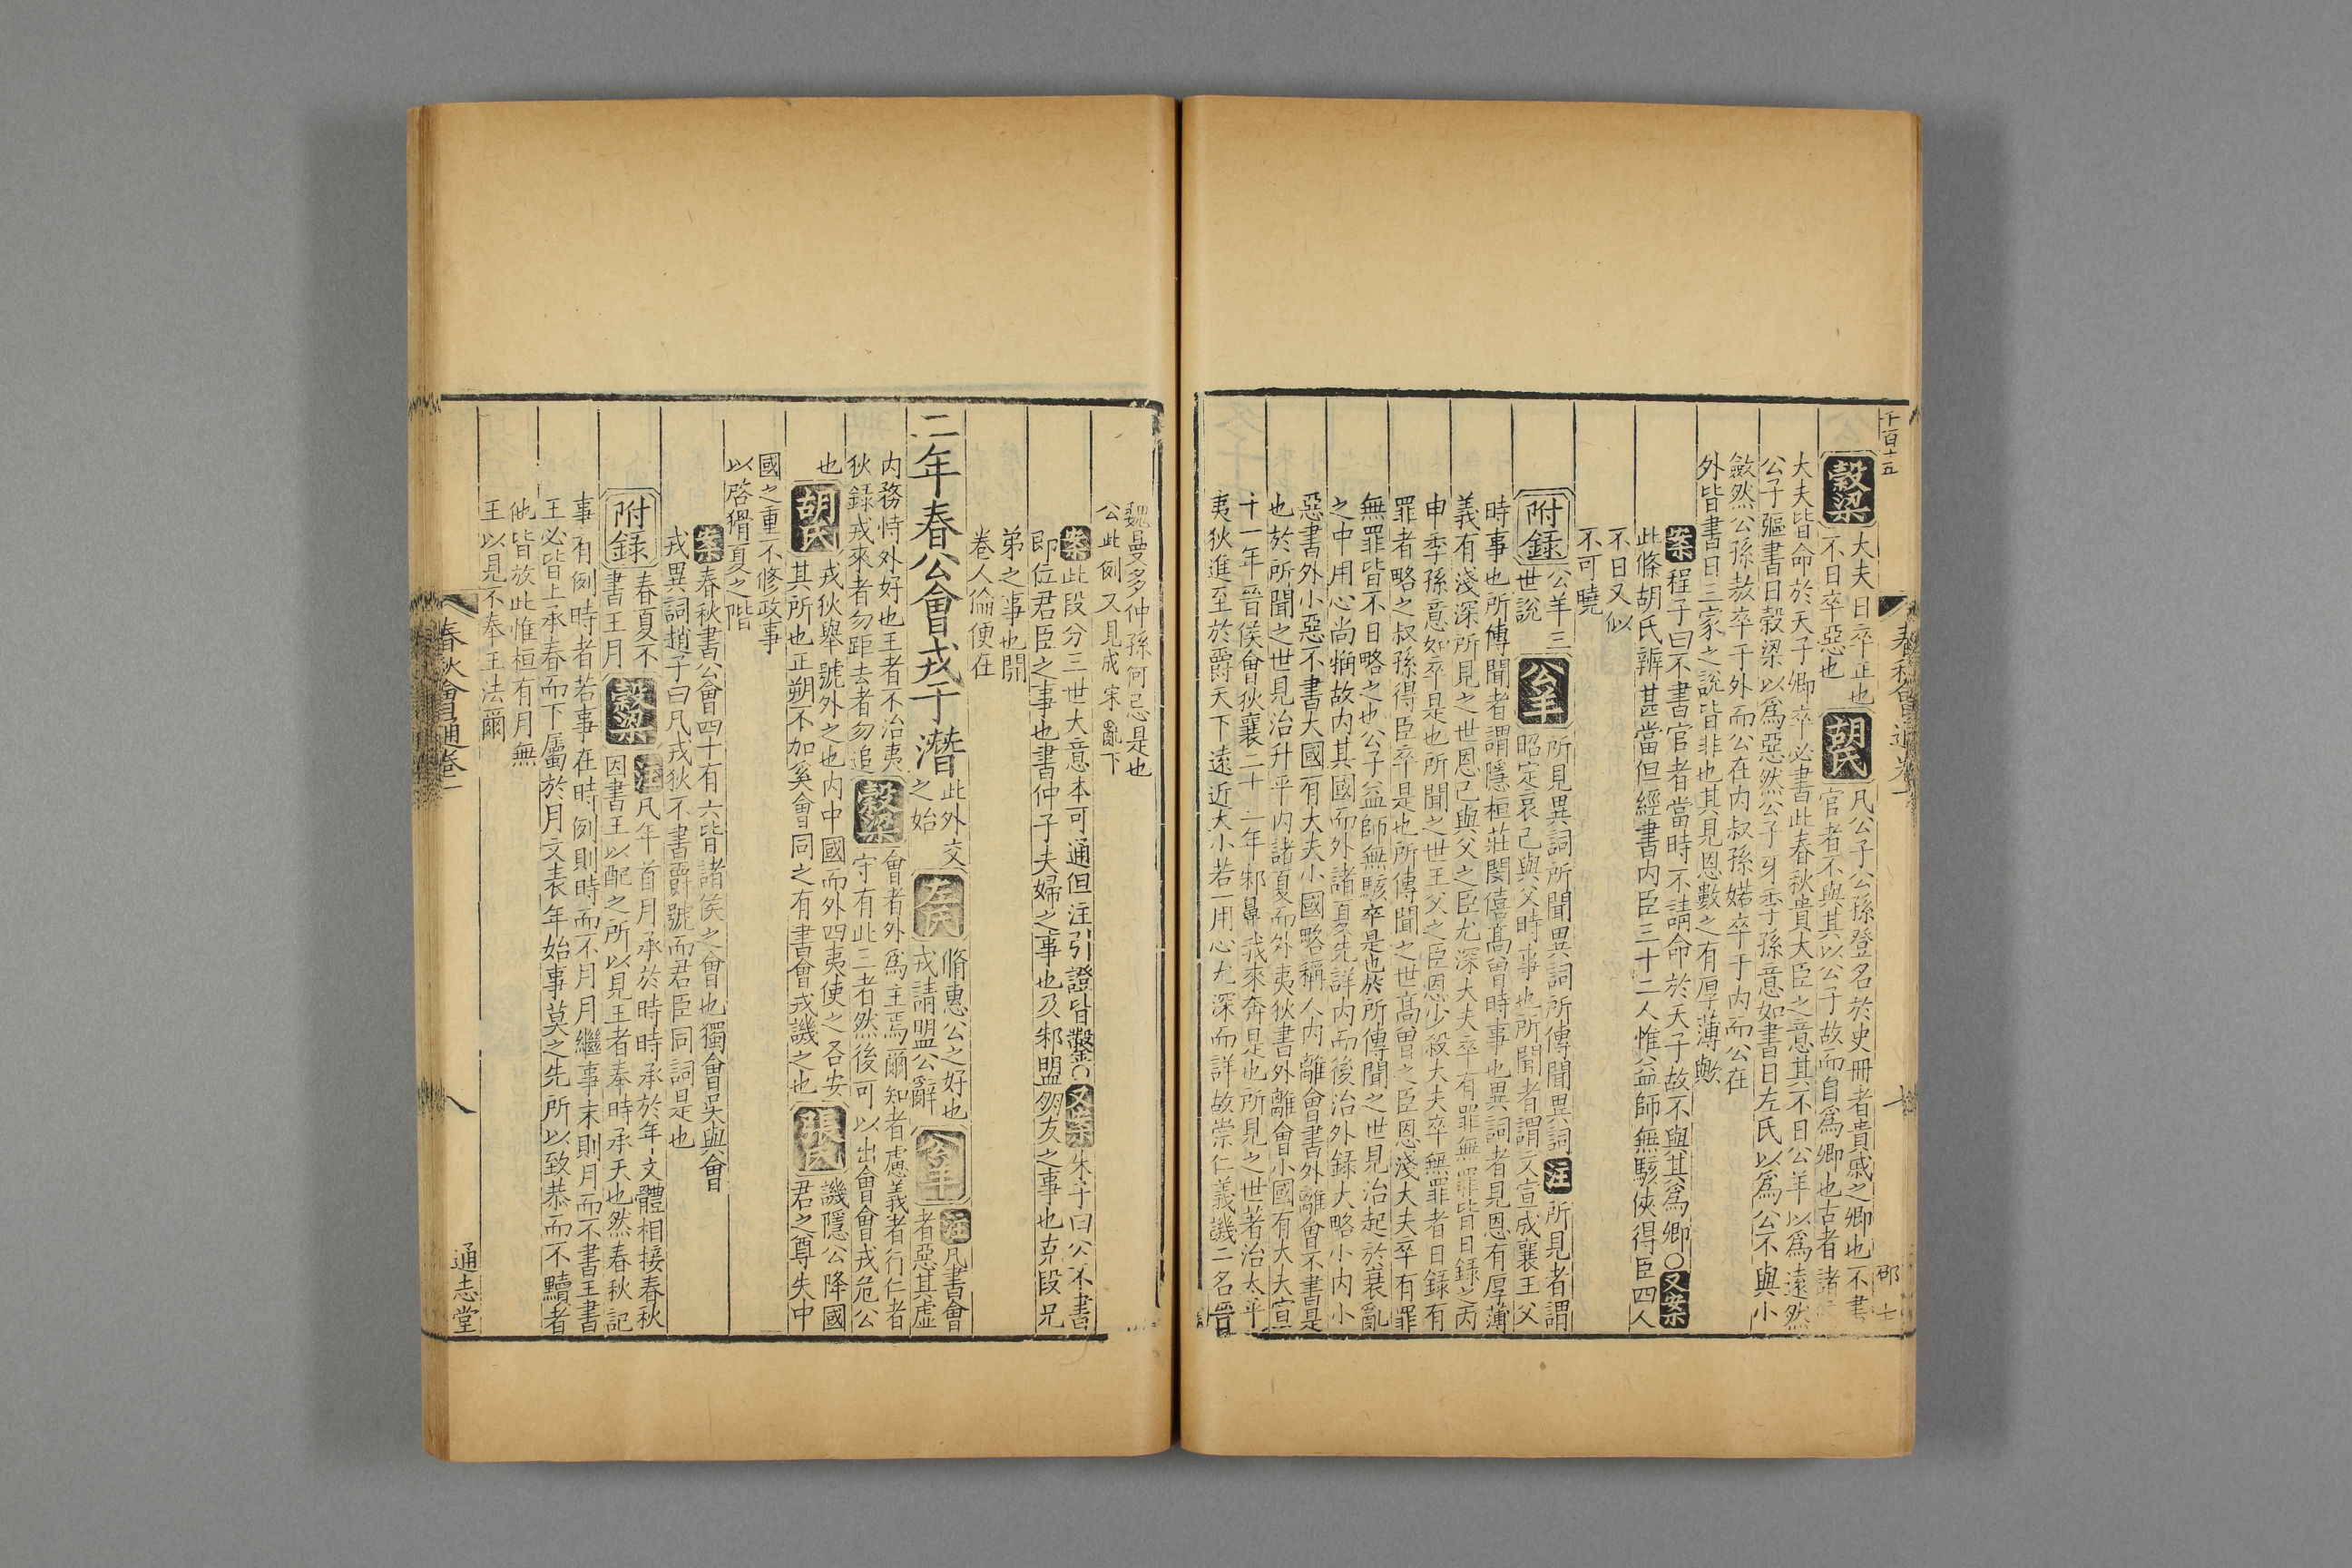 千百十五
春秋會通卷一
七
穀梁 大夫日卒正也
不日卒惡也
胡氏 凡公子公孫登名於史冊者貴戚之卿也不書
官者不與其以公子故而自爲卿也古者諸
大夫皆命於天子卿卒必書此春秋貴大臣之意其不日公羊以爲遠然
公子彄書日穀梁以爲惡然公子牙季孫意如書日左氏以爲公不與小
斂然公孫敖卒于外而公在内叔孫婼卒于内而公在
外皆書日三家之說皆非也其見恩數之有厚薄與
案 程子曰不書官者當時不請命於天子故不與其爲卿○又案
此條胡氏辨甚當但經書内臣三十二人惟益師無駭俠得臣四人
不日又似
不可曉
附錄 公羊三
世說
公羊 所見異詞所聞異詞所傳聞異詞 注 所見者謂
昭定哀己與父時事也所聞者謂文宣成襄王父
時事也所傳聞者謂隱桓莊閔僖高曾時事也異詞者見恩有厚薄
義有淺深所見之世恩己與父之臣尤深大夫卒有罪無罪皆日錄之丙
申季孫意如卒是也所聞之世王父之臣恩少殺大夫卒無罪者日錄有
罪者略之叔孫得臣卒是也所傳聞之世高曾之臣恩淺大夫卒有罪
無罪皆不日略之也公子益師無駭卒是也於所傳聞之世見治起於衰亂
之中用心尚觕故内其國而外諸夏先詳内而後治外錄大略小内小
惡書外小惡不書大國有大夫小國略稱人内離會書外離會不書是
也於所聞之世見治升平内諸夏而外夷狄書外離會小國有大夫宣
十一年晉侯會狄襄二十三年邾鼻我來奔是也所見之世著治太平
夷狄進至於爵天下遠近大小若一用心尤深而詳故崇仁義譏二名晉
魏曼多仲孫何忌是也
公此例又見成宋亂下
案 此段分三世大意本可通但注引證皆鑿○ 又案 朱子曰公不書
即位君臣之事也書仲子夫婦之事也及邾盟朋友之事也克段兄
弟之事也開
卷人倫便在
二年春公會戎于潛
此外交
之始
左氏 脩惠公之好也
戎請盟公辭
公羊 注 凡書會
者惡其虛
内務恃外好也王者不治夷
狄錄戎來者勿距去者勿追
穀梁 會者外爲主焉爾知者慮義者行仁者
守有此三者然後可以出會會戎危公
也
胡氏 戎狄舉號外之也内中國而外四夷使之各安
其所也正朔不加奚會同之有書會戎譏之也
張氏 譏隱公降國
君之尊失中
國之重不修政事
以啓猾夏之階
案 春秋書公會四十有六皆諸侯之會也獨會吳與會
戎異詞趙子曰凡戎狄不書爵號而君臣同詞是也
附錄 春夏不
書王月
穀梁 注 凡年首月承於時時承於年文體相接春秋
因書王以配之所以見王者奉時承天也然春秋記
事有例時者若事在時例則時而不月月繼事末則月而不書王書
王必皆上承春而下屬於月文表年始事莫之先所以致恭而不黷者
他皆放此惟桓有月無
王以見不奉王法爾
春秋會通卷一
八
通志堂